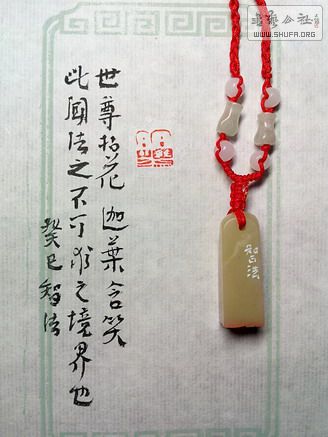 世尊拈花迦葉含笑
此固法之不可求之境界也
癸巳智法
智法
書藝公社
WWW.SHUFA.ORG